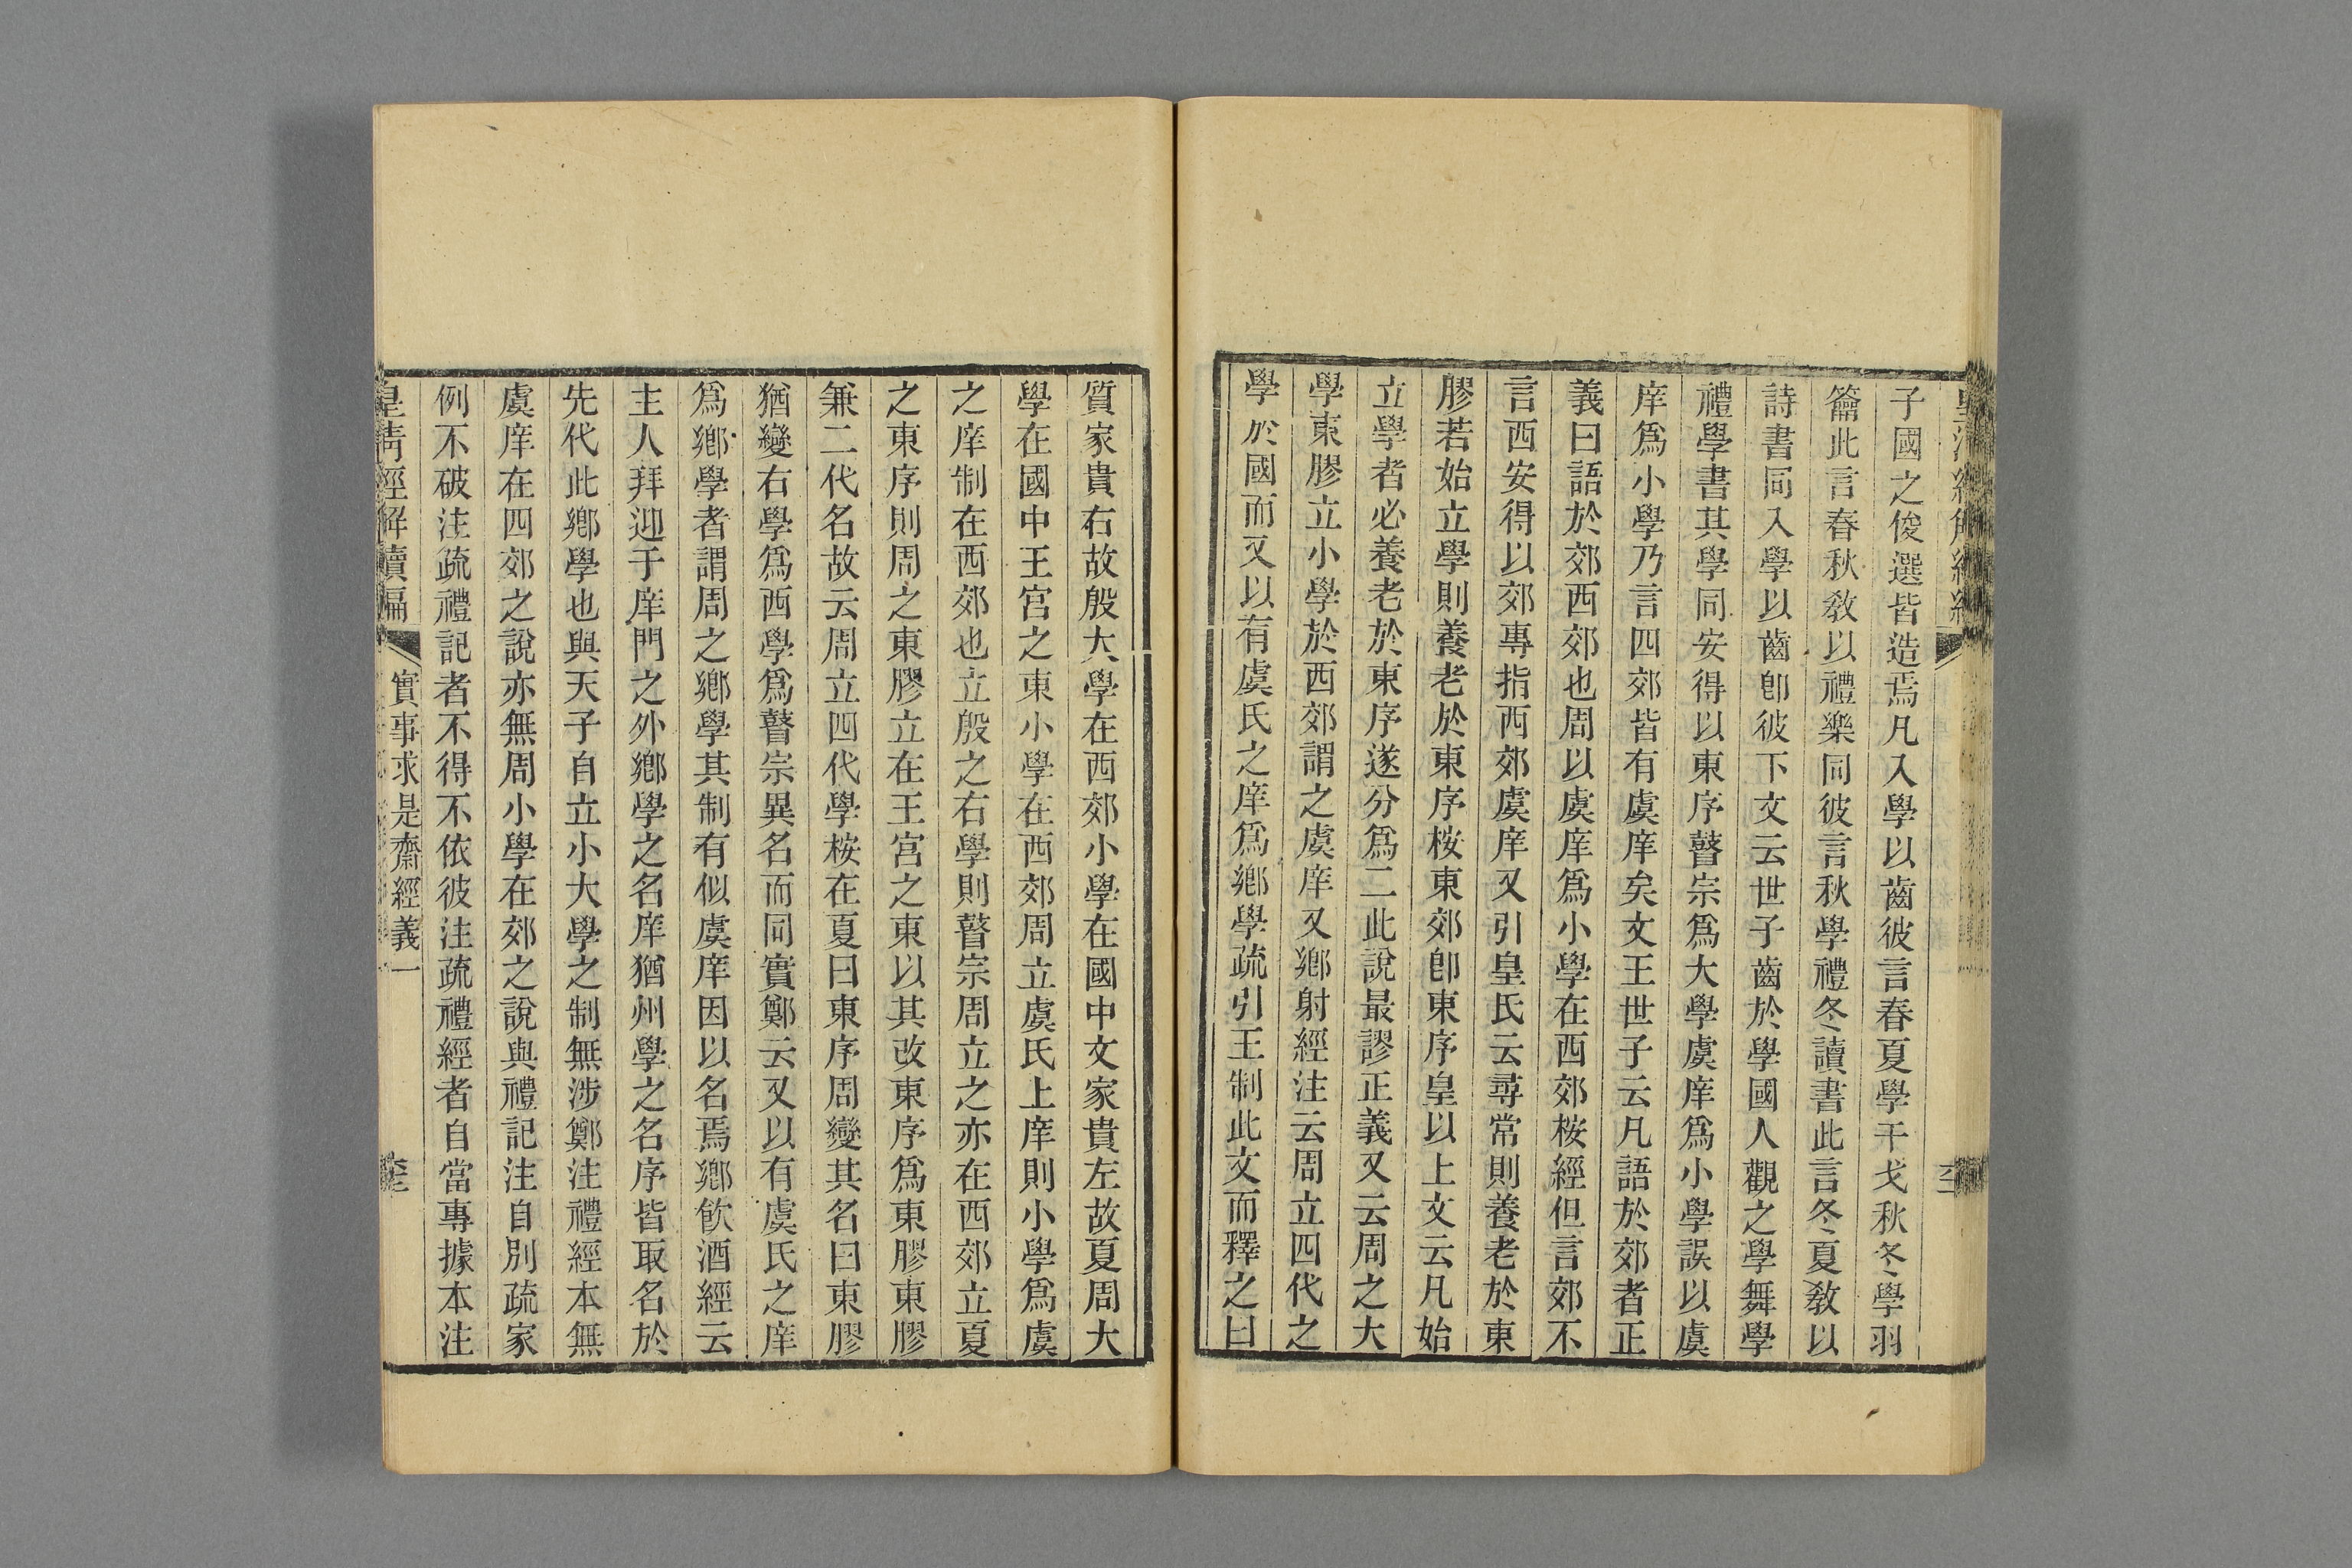 子國之俊選皆造焉凡入學以齒彼言春夏學干戈秋冬學羽
籥此言春秋敎以禮樂同彼言秋學禮冬讀書此言冬夏敎以
詩書同入學以齒卽彼下文云世子齒於學國人觀之學舞學
禮學書其學同安得以東序瞽宗爲大學虞庠爲小學誤以虞
庠爲小學乃言四郊皆有虞庠矣文王世子云凡語於郊者正
義曰語於郊西郊也周以虞庠爲小學在西郊桉經但言郊不
言西安得以郊專指西郊虞庠又引皇氏云尋常則養老於東
膠若始立學則養老於東序桉東郊卽東序皇以上文云凡始
立學者必養老於東序遂分爲二此說最謬正義又云周之大
學東膠立小學於西郊謂之虞庠又鄕射經注云周立四代之
學於國而又以有虞氏之庠爲鄕學疏引王制此文而釋之曰
質家貴右故殷大學在西郊小學在國中文家貴左故夏周大
學在國中王宮之東小學在西郊周立虞氏上庠則小學爲虞
之庠制在西郊也立殷之右學則瞽宗周立之亦在西郊立夏
之東序則周之東膠立在王宮之東以其改東序爲東膠東膠
兼二代名故云周立四代學桉在夏曰東序周變其名曰東膠
猶變右學爲西學爲瞽宗異名而同實鄭云又以有虞氏之庠
爲鄕學者謂周之鄕學其制有似虞庠因以名焉鄕飮酒經云
主人拜迎于庠門之外鄕學之名庠猶州學之名序皆取名於
先代此鄕學也與天子自立小大學之制無涉鄭注禮經本無
虞庠在四郊之說亦無周小學在郊之說與禮記注自別疏家
例不破注疏禮記者不得不依彼注疏禮經者自當專據本注
皇淸經解續編　實事求是齋經義一